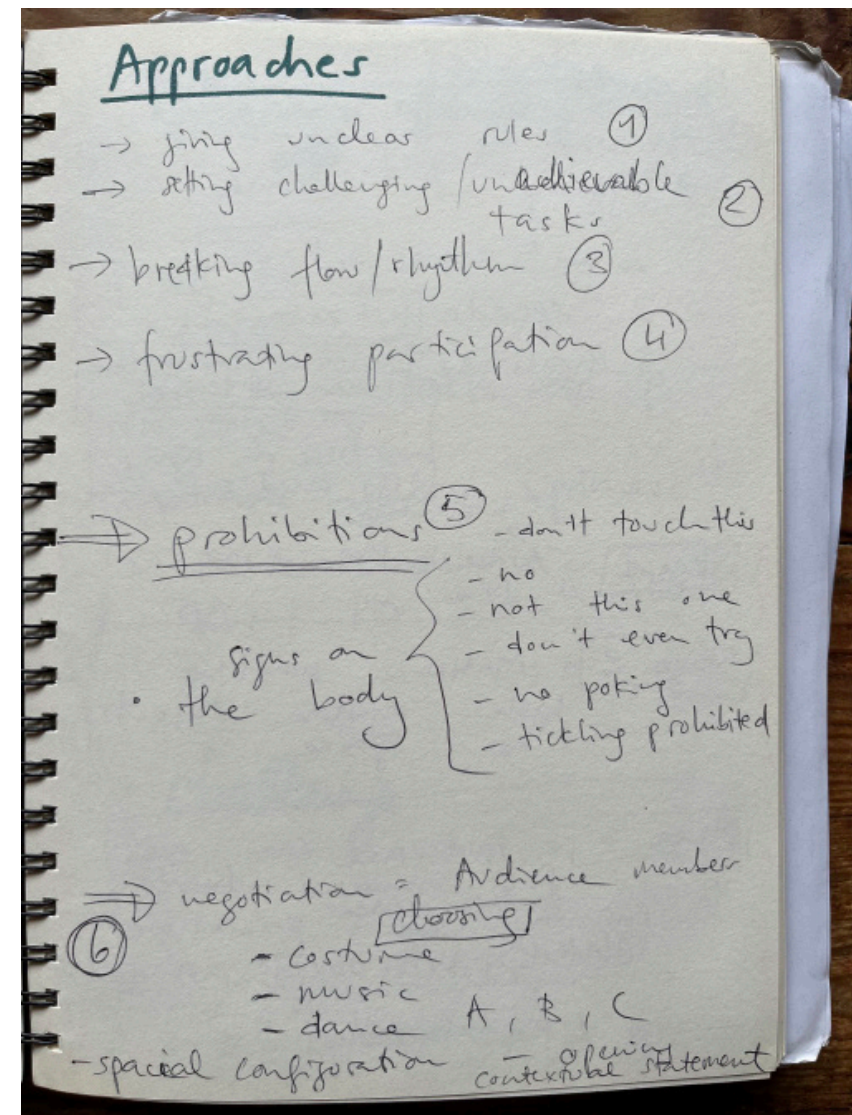 Approaches
→ giving unclear rules ①
→ setting challenging / unachievable
tasks ②
→ breaking flow / rhythm ③
→ frustrating participation ④
⇒ prohibitions ⑤
- don't touch this
- no
- not this one
- don't even try
- no poking
- tickling prohibited
• signs on
the body
⇒ negotiation = Audience member
⑥ choosing
- costume
- music
- dance A, B, C
- spacial configuration
- opening
contextube statement